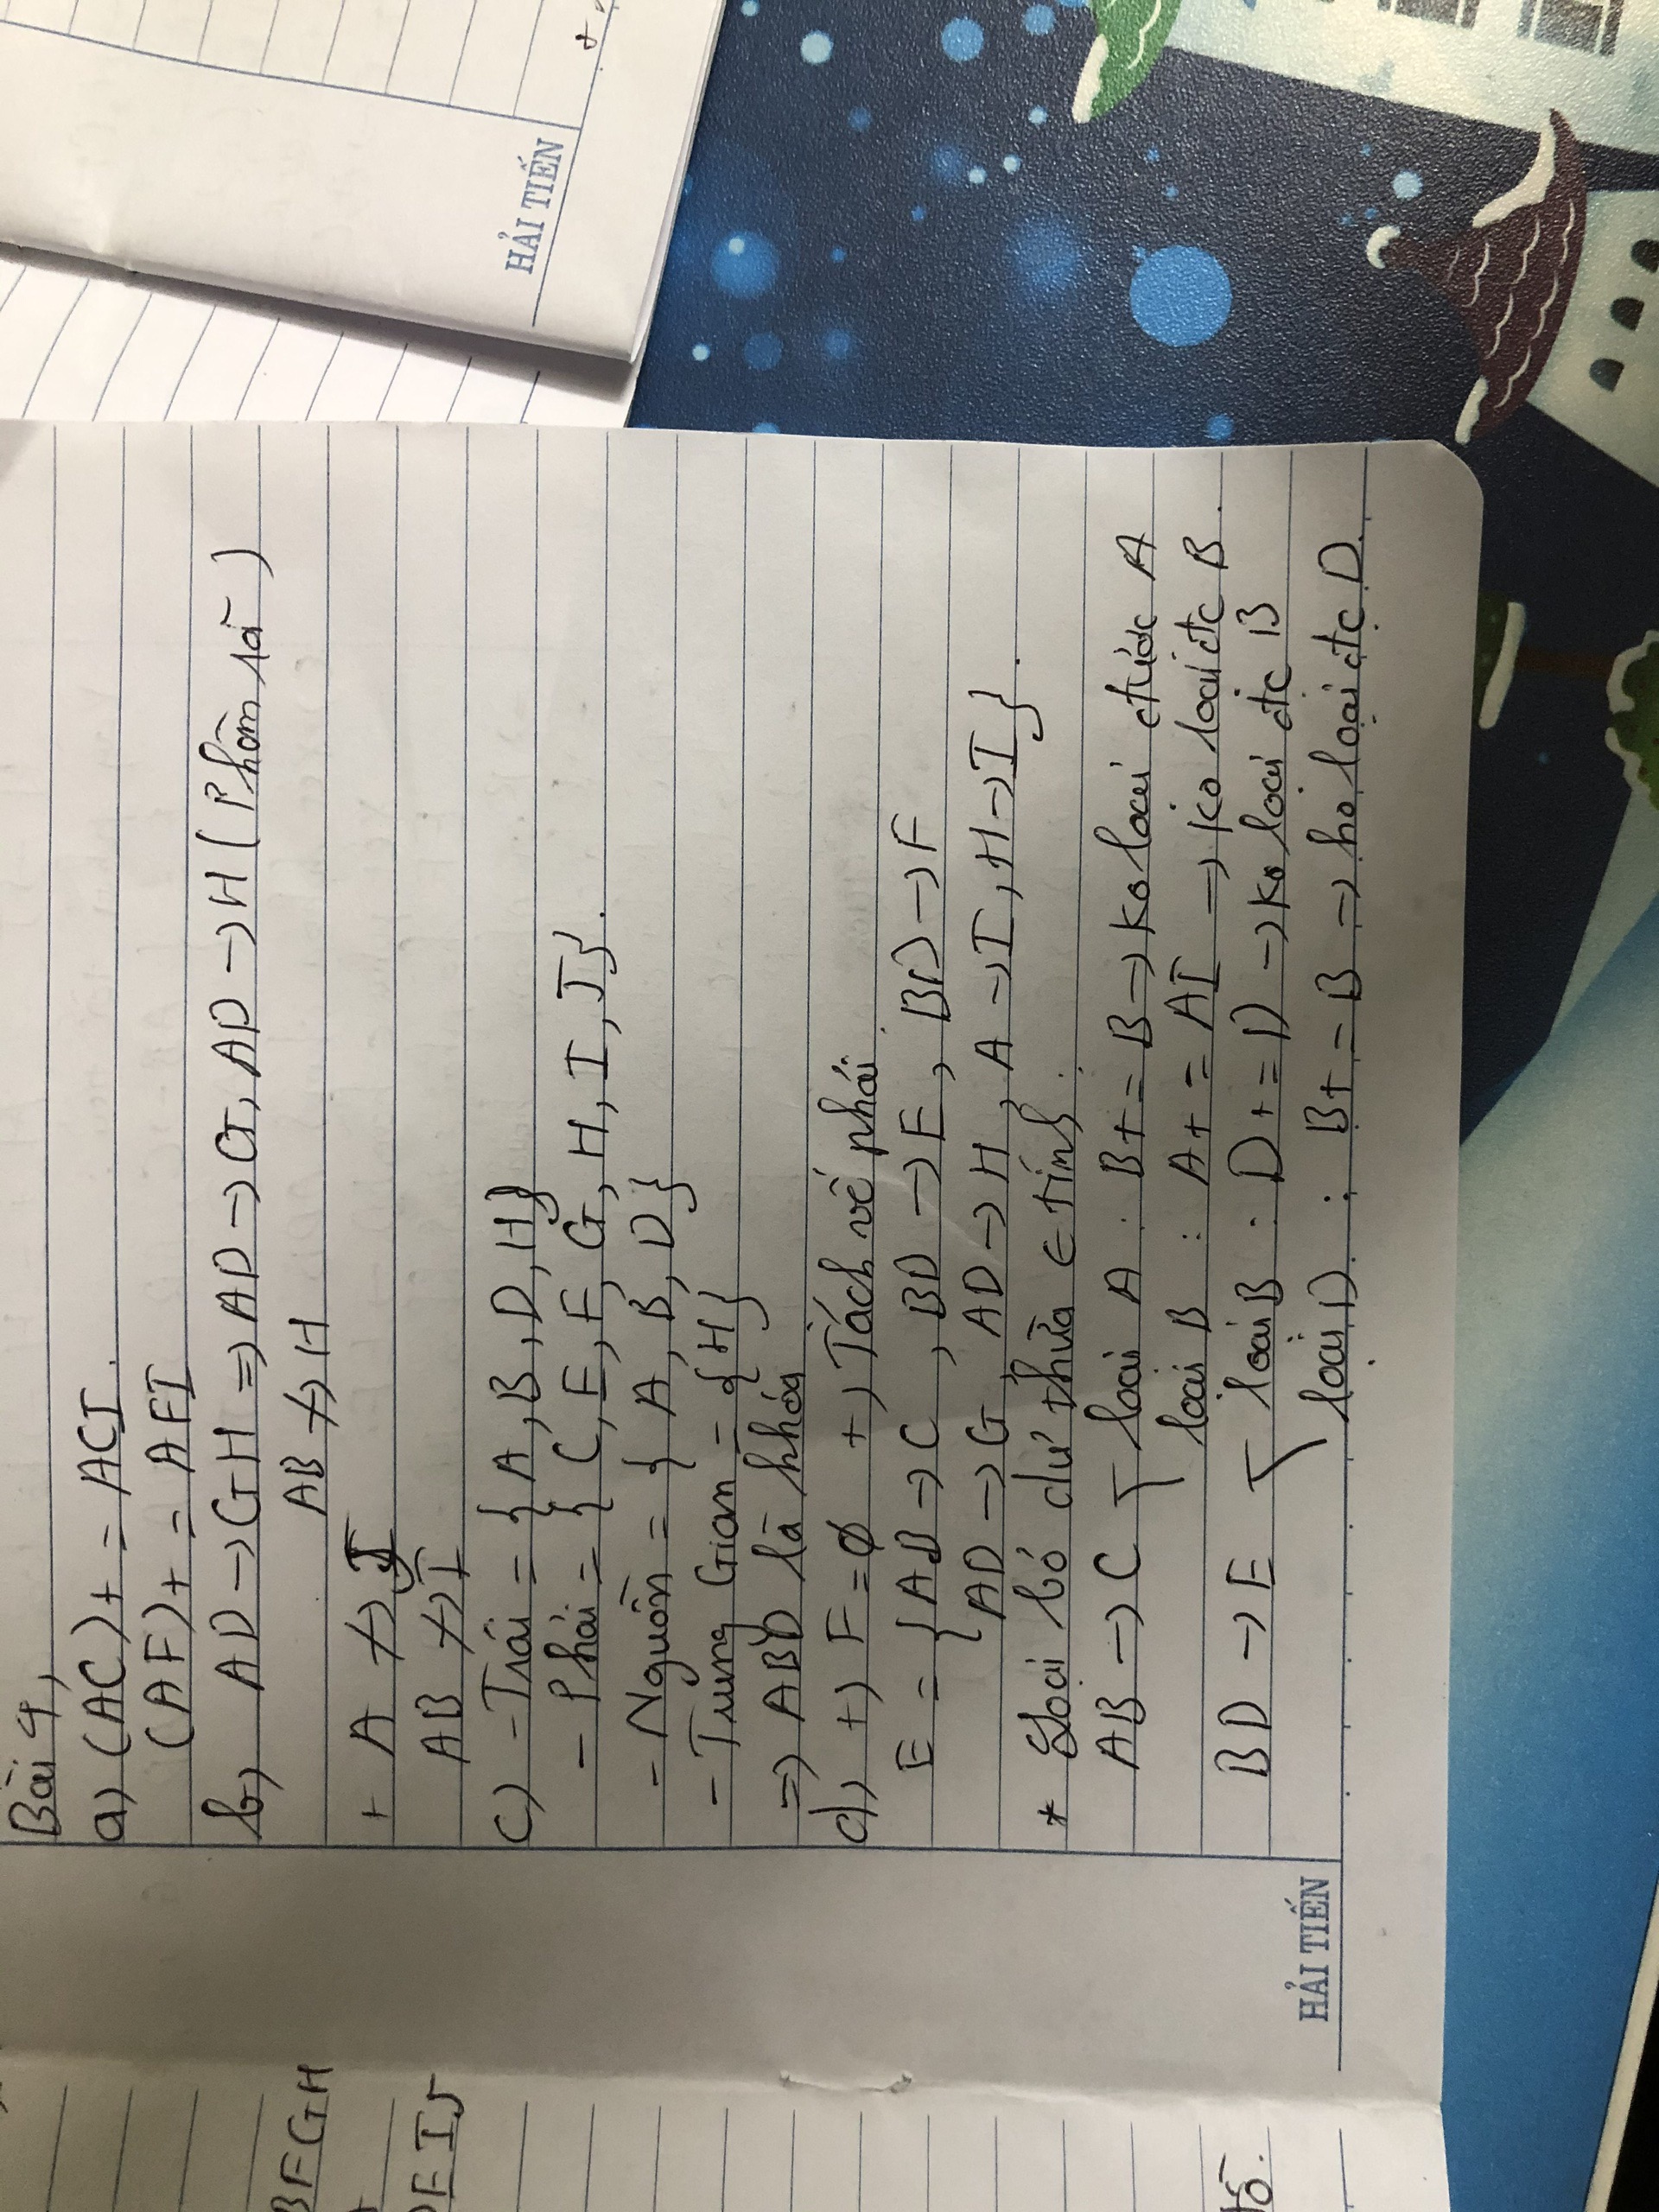 Bài 4,
a) (AC)+ = ACI.
(AF)+ = AFI
b, AD → GH => AD → G, AD → H (Phân rã)
AB ↛ H
+ A ↛ J
AB ↛ I
c) - Trái = { A, B, D, H}
- Phải = { C, E, F, G, H, I, J}.
- Nguồn = { A, B, D}
- Trung Gian = {H}
=> ABD là khóa
d), +) F = ∅ +) Tách vế phải
F = {AB → C, BD → E, BD → F
{AD → G, AD → H, A → I, H → I}.
* Loại bỏ dư thừa ∈ tính.
AB → C { loại A : B+ = B → ko loại được A
loại B : A+ = AI → ko loại đc B.
BD → E { loại B : D+ = D → ko loại đc B
loại D : B+ = B → ko loại đc D.
HẢI TIẾN
HẢI TIẾN
BFGH